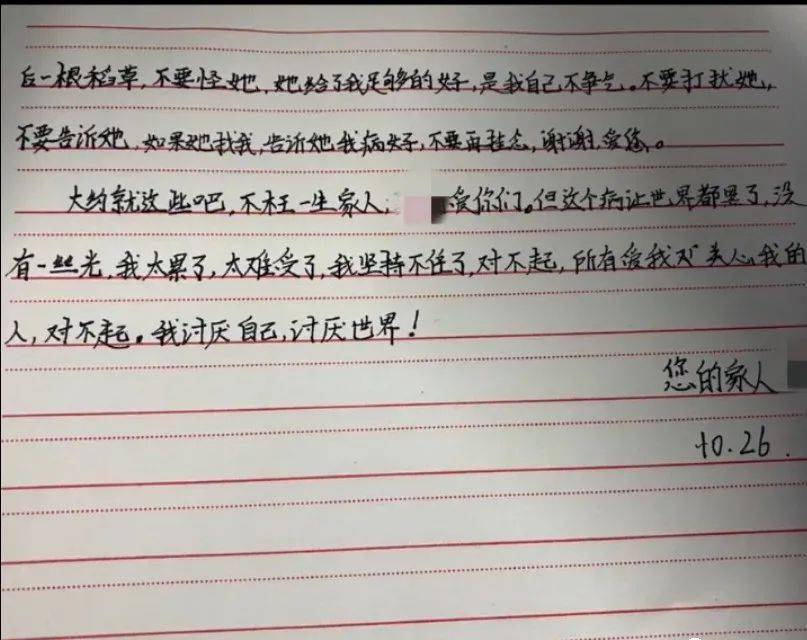 后一根稻草，不要怪她，她给了我足够的好，是我自己不争气。不要打扰她，
不要告诉她，如果她找我，告诉她我病好，不要再挂念，谢谢，爱您。
大约就这些吧，不枉一生家人，爱你们。但这个病让世界都黑了，没
有一丝光，我太累了，太难受了，我坚持不住了，对不起，所有爱我关心我的
人，对不起。我讨厌自己，讨厌世界！
您的家人
10.26.